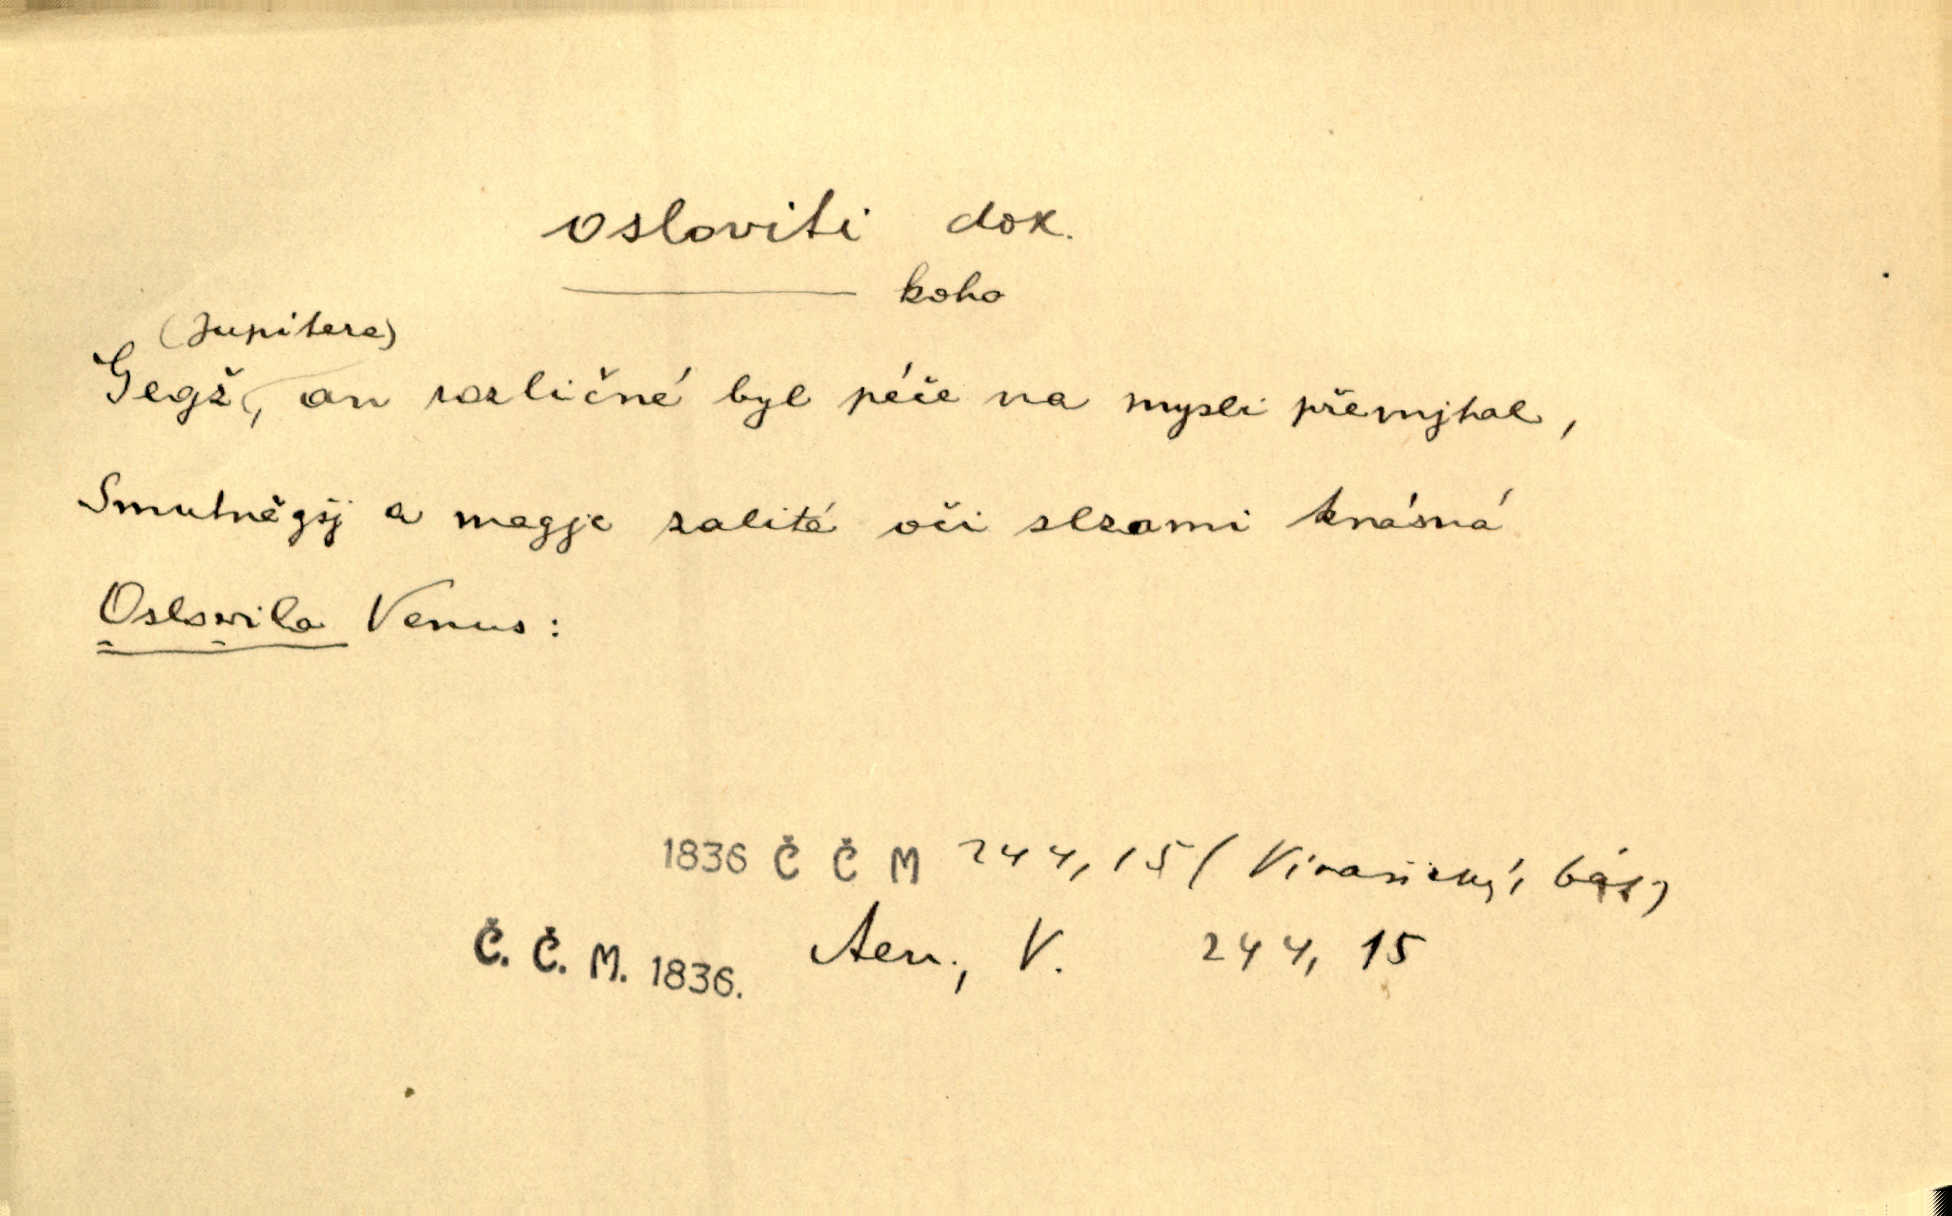 osloviti dok.
koho
(Jupitera)
Gegž, an rozličné byl péče na mysli přemjtal,
Smutněgšj a magjc zalité oči slzami krásná
Oslowila Venus:
1836 Č Č M 244, 15 (Vinařický, bás)
Č. Č. M. 1836. Aen., V. 244, 15